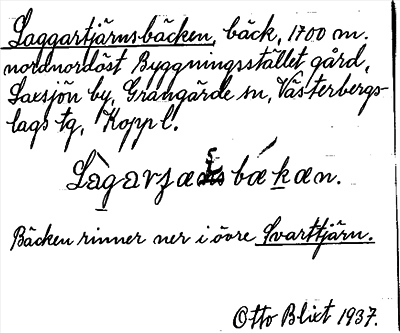 Laggartjärnsbäcken, bäck, 1700 m.
nordnordöst Byggningsstället gård,
Laxsjön by, Grangärde sn, Västerbergs-
lags tg, Kopp l.
Bäcken rinner ner i övre Svarttjärn.
Otto Blixt 1937.